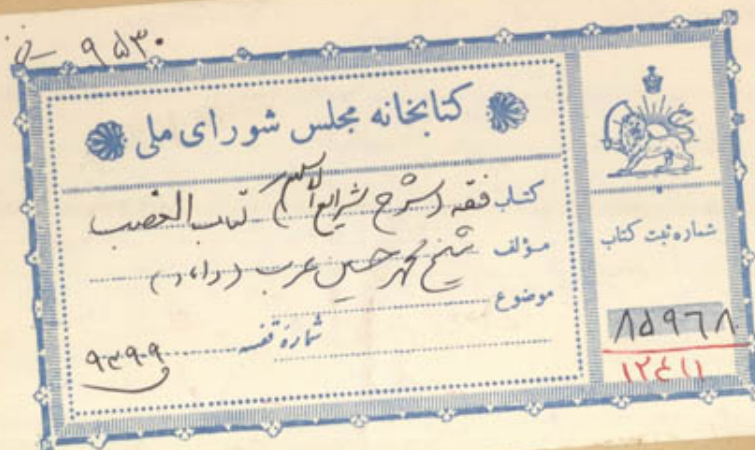 ۹۵۳۰
کتابخانه مجلس شورای ملی
کتاب فقه (شرح شرایع الاسلام) کتاب الغصب
مؤلف شیخ محمد حسین عرب
موضوع
شماره قفسه
شماره ثبت کتاب
۸۵۹۶۸
۱۲۴۱۱